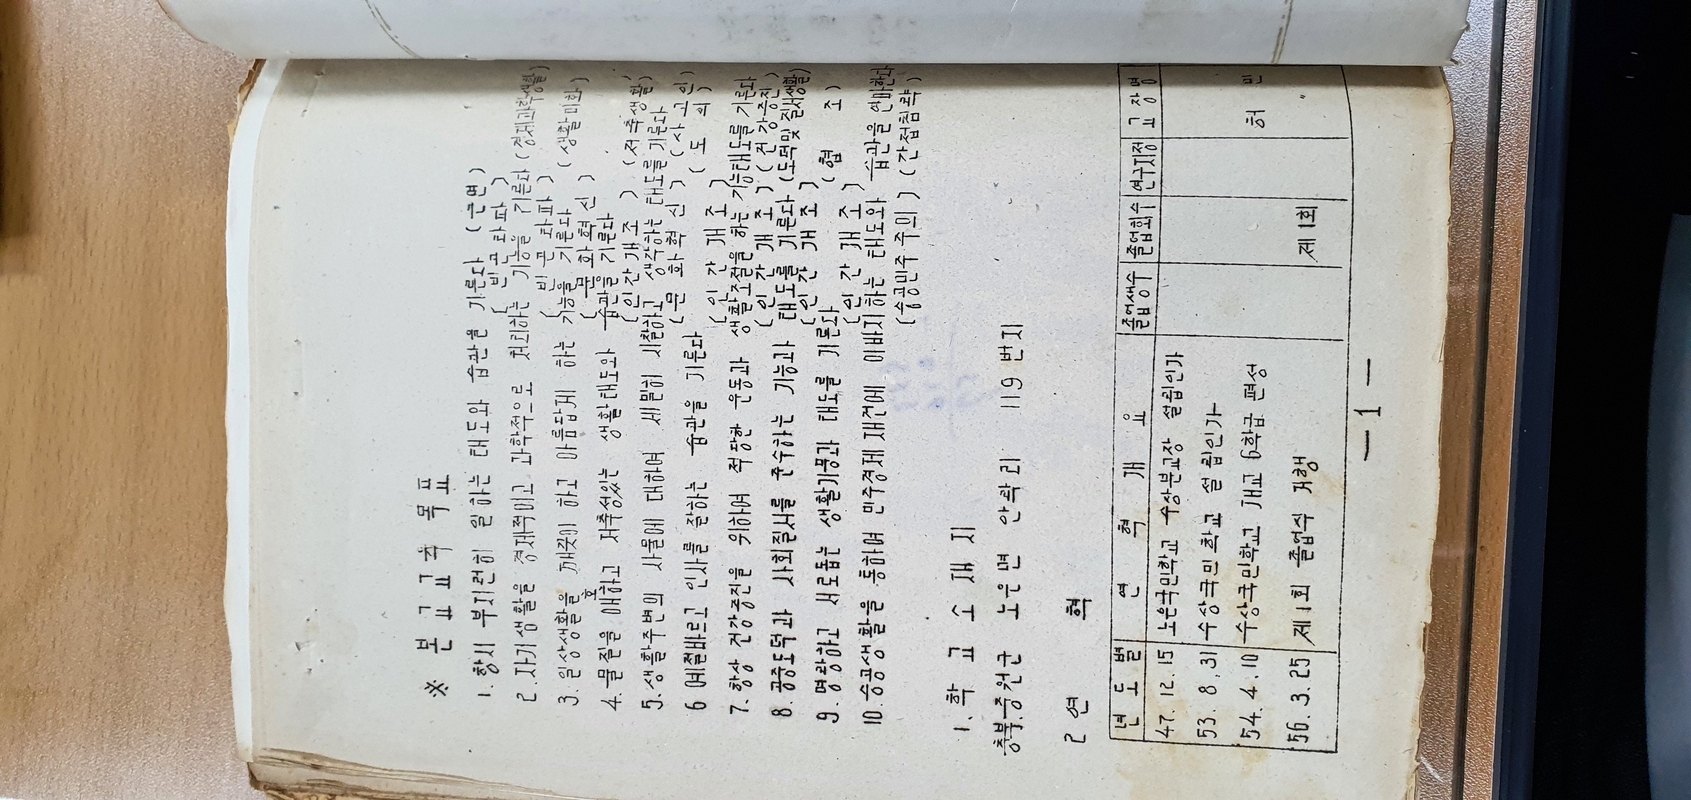 ※ 본교교육목표
1. 항시 부지런히 일하는 태도와 습관을 기른다 (근면)
(빈곤타파)
2. 자기생활을 경제적이고 과학적으로 처리하는 기능을 기른다 (경제과학생활)
(빈곤타파)
3. 일상생활을 깨끗이 하고 아름답게 하는 기능을 기른다 (생활미화)
(문화혁신)
4. 물질을 애호하고 저축성있는 생활태도와 습관을 기른다 (저축생활)
(인간개조)
5. 생활주변의 사물에 대하여 세밀히 시찰하고 생각하는 태도를 기른다 (사고인)
(문화혁신)
6 예절바르고 인사를 잘하는 습관을 기른다 (도의)
(인간개조)
7. 항상 건강증진을 위하여 적당한 운동과 생활조절을 하는 기능태도를 기른다 (건강증진)
(인간개조)
8. 공중도덕과 사회질서를 준수하는 기능과 태도를 기른다 (도덕및질서생활)
(인간개조)
9. 명랑하고 서로돕는 생활기풍과 태도를 기른다 (협조)
(인간개조)
10. 승공생활을 통하여 민주경제재건에 이바지하는 태도와 습관을 연마한다
(승공민주주의) (간접침략)
1. 학교소재지
충북중원군 노은면 안락리 119 번지
2 연 혁
년도별 연혁개요 졸업생수 졸업회수 연구지정 교장명
47. 12. 15 노은국민학교 수상분교장 설립인가
53. 8. 31 수상국민학교 설립인가
54. 4. 10 수상국민학교 개교 6학급 편성 허 민
56. 3. 25 제1회 졸업식 거행 제1회
—1—